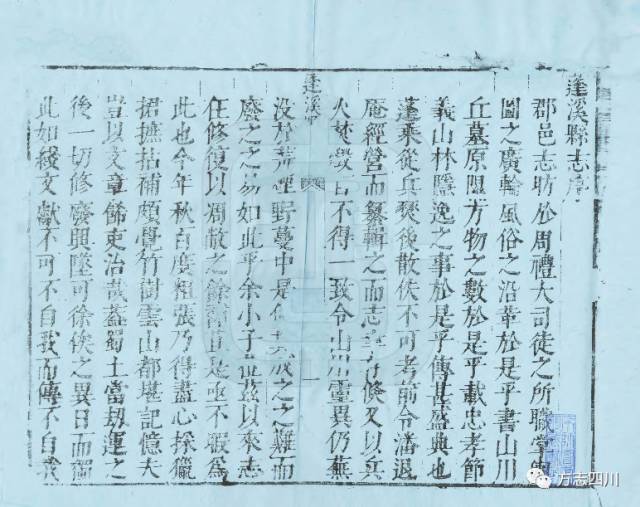 蓬溪縣志序
郡邑志昉於周禮大司徒之所職掌
圖之廣輪風俗之沿革於是乎書山川
丘墓原隰方物之數於是乎載忠孝節
義山林隱逸之事於是乎傳甚盛典也
蓬乘從兵燹後散佚不可考前令潘退
庵經營而纂輯之而志又以兵
火焚不得一致令山川靈異仍蕪
沒於荒烟野蔓中是成之之難而
廢之之易如此乎余小子茲以來志
任修復以凋敝之餘是亟不暇為
此也今年秋百度粗張乃得盡心採獵
捃摭拈補頗覺竹樹雲山都堪記憶夫
豈以文章飾吏治哉蓋蜀土當劫運之
後一切修廢興墜可徐俟之異日而獨
此如綫文獻不可不自我而傳不自我
蓬溪
一
方志四川